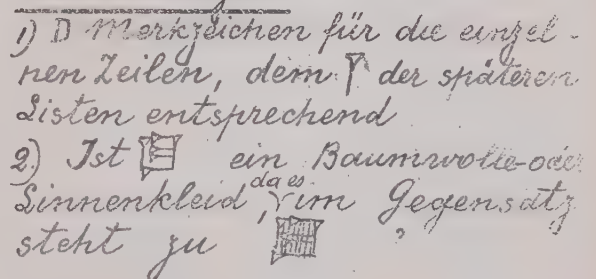 1) D Merkzeichen für die einzel-
nen Zeilen, dem Y der späteren
Listen entsprechend
2) Ist ein Baumwolle- oder
Linnenkleid, da es im Gegensatz
steht zu ?